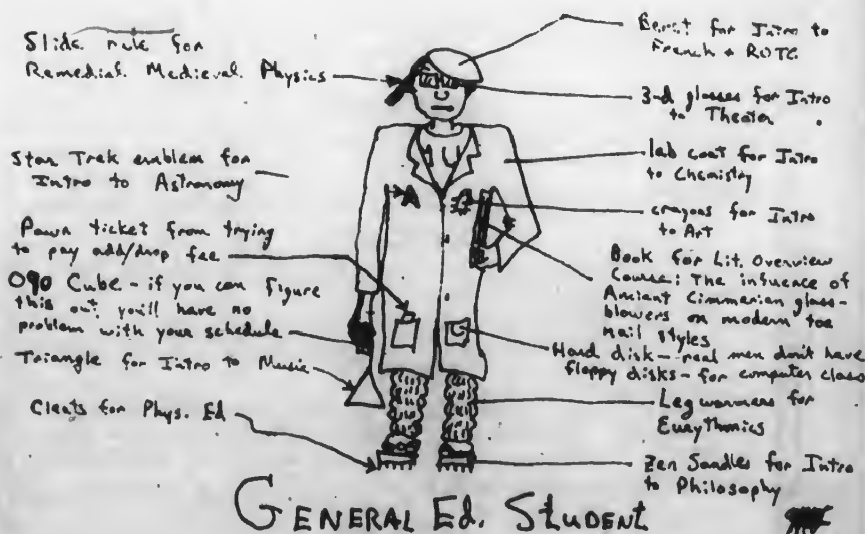 Slide rule for
Remedial Medieval Physics
Star Trek emblem for
Intro to Astronomy
Pawn ticket from trying
to pay add/drop fee
090 Cube - if you can figure
this out, you'll have no
problem with your schedule
Triangle for Intro to Music
Cleats for Phys. Ed
Beret for Intro to
French + ROTC
3-d glasses for Intro
to Theater
lab coat for Intro
to Chemistry
crayons for Intro
to Art
Book for Lit. Overview
Course: The infuence of
Ancient Cimmerian glass-
blowers on modern toe
nail styles
Hard disk - real men don't have
floppy disks - for computer class
Leg warmers for
Eurythmics
Zen Sandles for Intro
to Philosophy
IU
GENERAL Ed. STUDENT